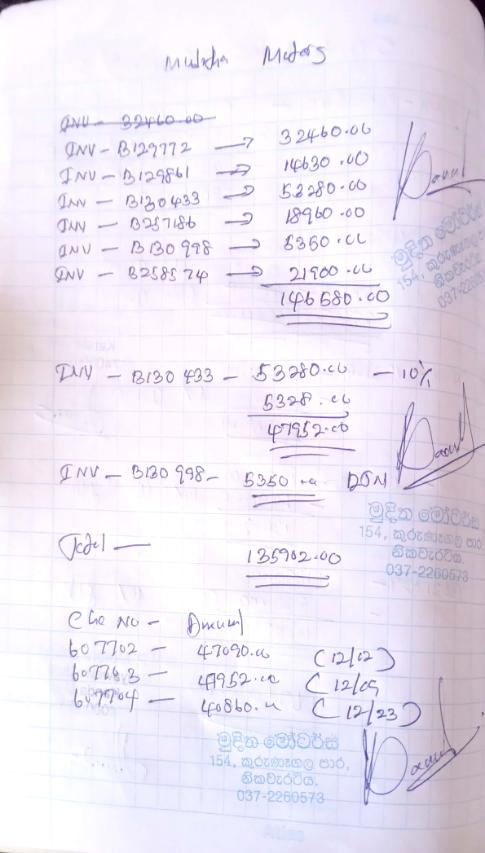 Motors
INV - 32460.00
INV - B129772 → 32460.00
INV - B129861 → 14630.00
INV - B130433 → 53280.00
INV - B257186 → 18960.00
INV - B130998 → 5350.00
INV - B258574 → 21900.00
146580.00
INV - B130433 - 53280.00 - 10%
5328.00
47952.00
INV - B130998 - 5350.00
Total - 135902.00
Che No - Amount
607702 - 47090.00 (12/02)
607703 - 47952.00 (12/09)
607704 - 40860.00 (12/23)
මුදිත මෝටර්ස්
154, කුරුණෑගල පාර,
037-2260573
මුදිත මෝටර්ස්
154, කුරුණෑගල පාර,
නිකවැරටිය.
037-2260573
මුදිත මෝටර්ස්
154, කුරුණෑගල පාර,
නිකවැරටිය.
037-2260573